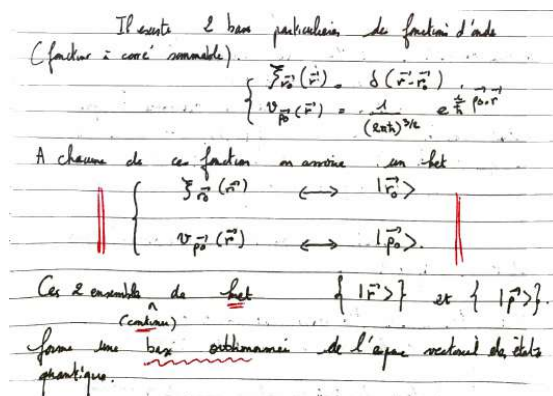 Il existe 2 bases particulières de fonctions d'onde
(fonction à carré sommable).
ξ_{\vec{r_0}}(\vec{r}) = δ(\vec{r}-\vec{r_0})
v_{\vec{p_0}}(\vec{r}) = \frac{1}{(2πħ)^{3/2}} e^{\frac{i}{ħ} \vec{p_0}.\vec{r}}
A chacune de ces fonction on associe un ket
ξ_{\vec{r_0}}(\vec{r}) ⟷ |\vec{r_0}>
v_{\vec{p_0}}(\vec{r}) ⟷ |\vec{p_0}>.
Ces 2 ensemble de ket { |\vec{r}>} et { |\vec{p}>}.
(continu)
forme une base orthonormée de l'espace vectoriel des états
quantique.